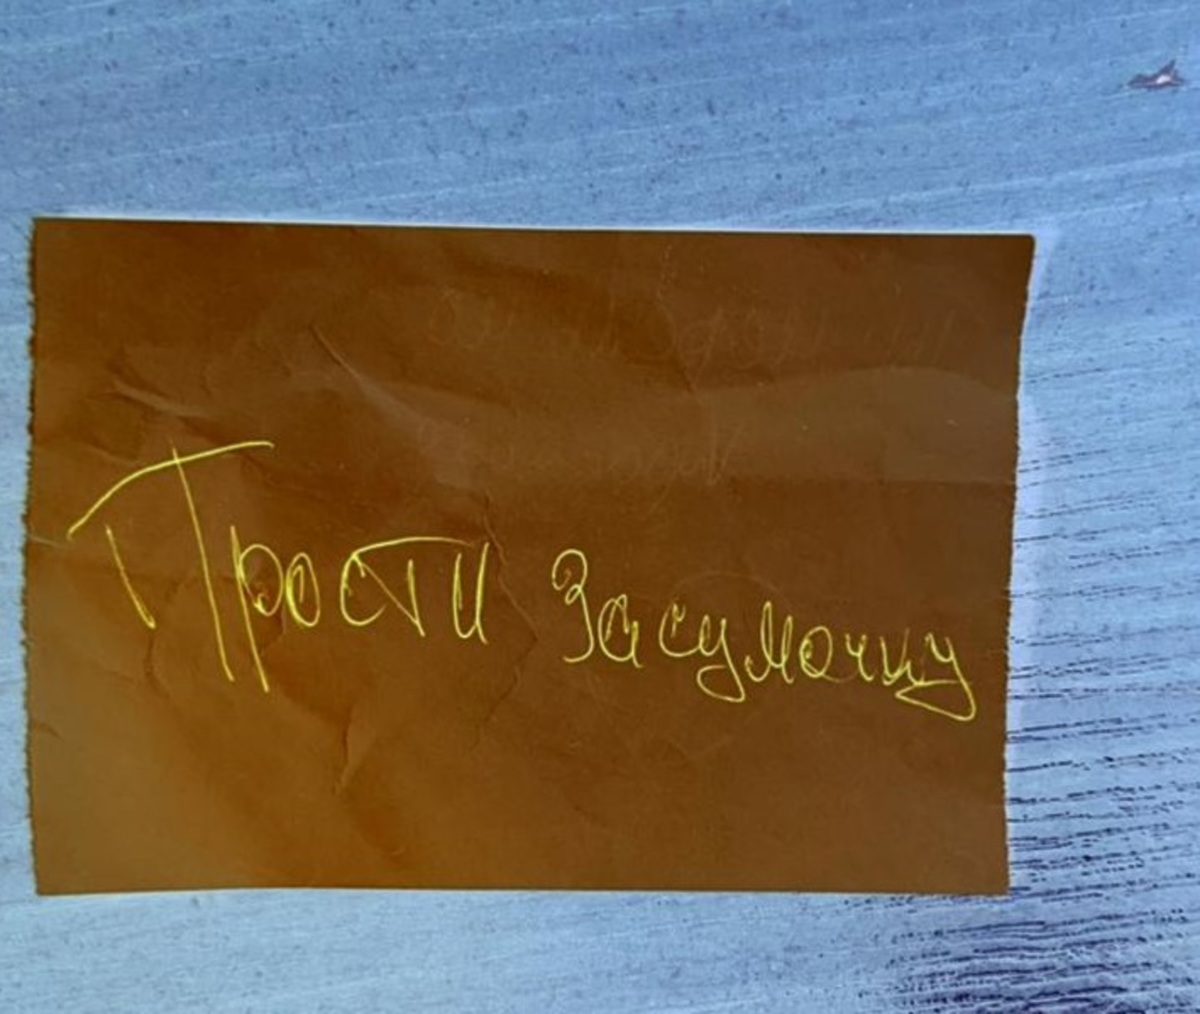 Прости за сумочку